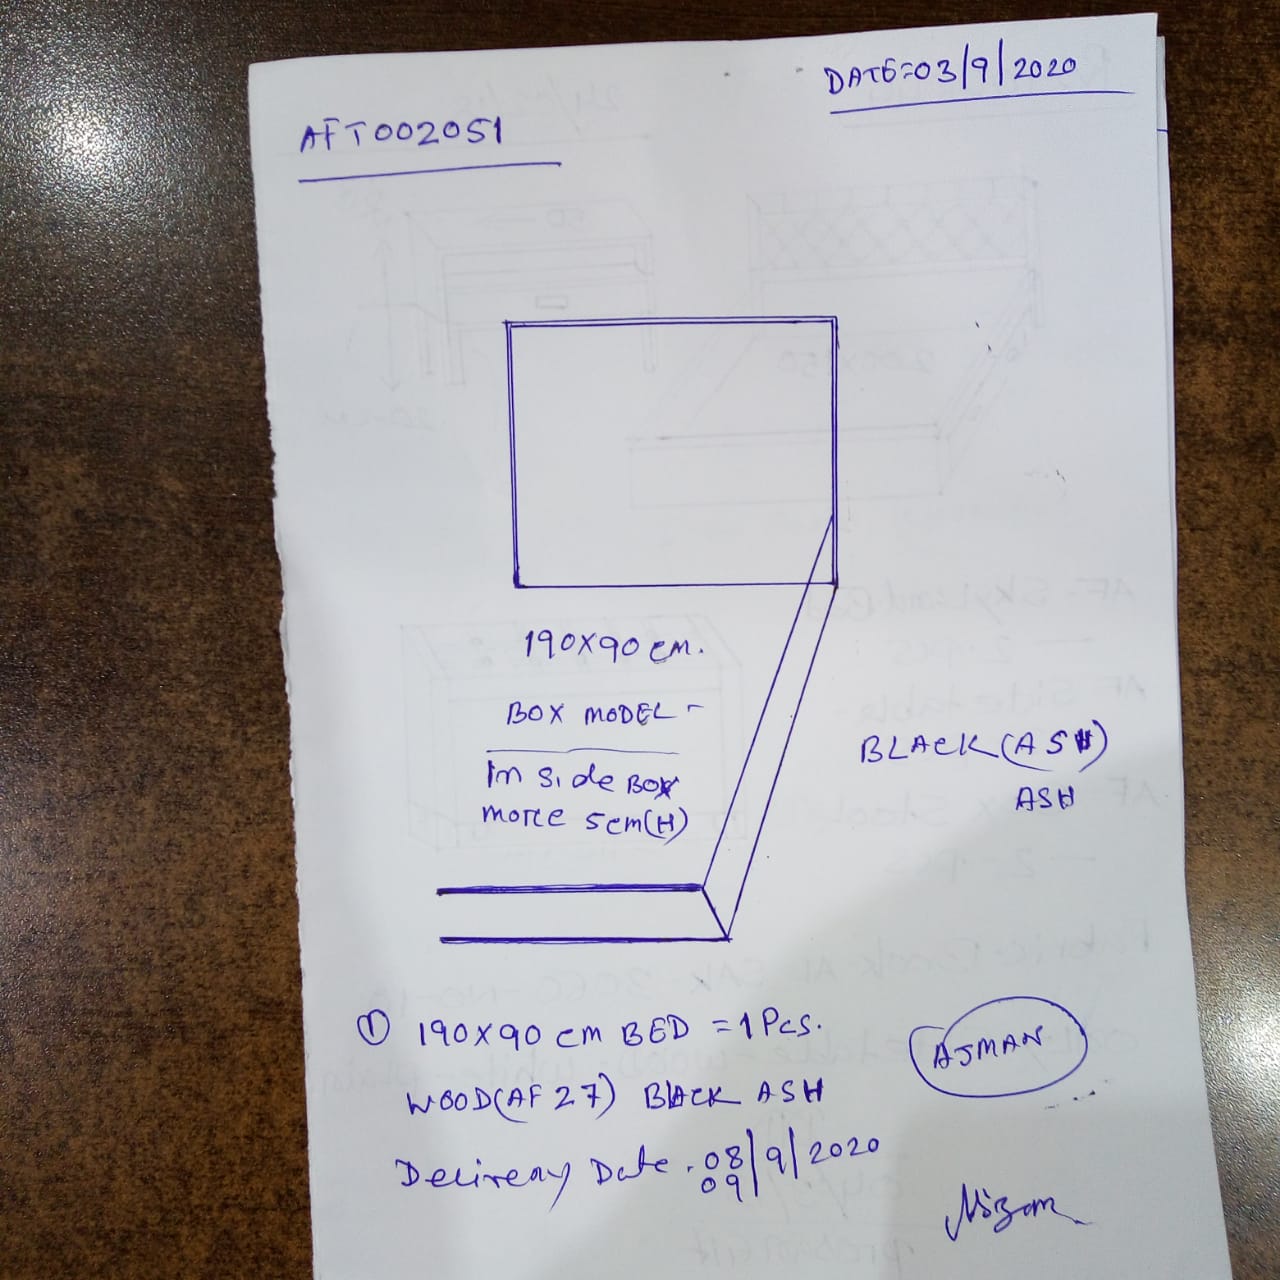 DATE=03/9/2020
AFT002051
190X90 cm.
BOX MODEL -
In side BOX
more 5cm(H)
BLACK(ASH)
ASH
① 190X90 cm BED = 1 Pcs.
WOOD(AF27) BLACK ASH
AJMAN
Delivery Date. 08/9/2020
09
Nizam